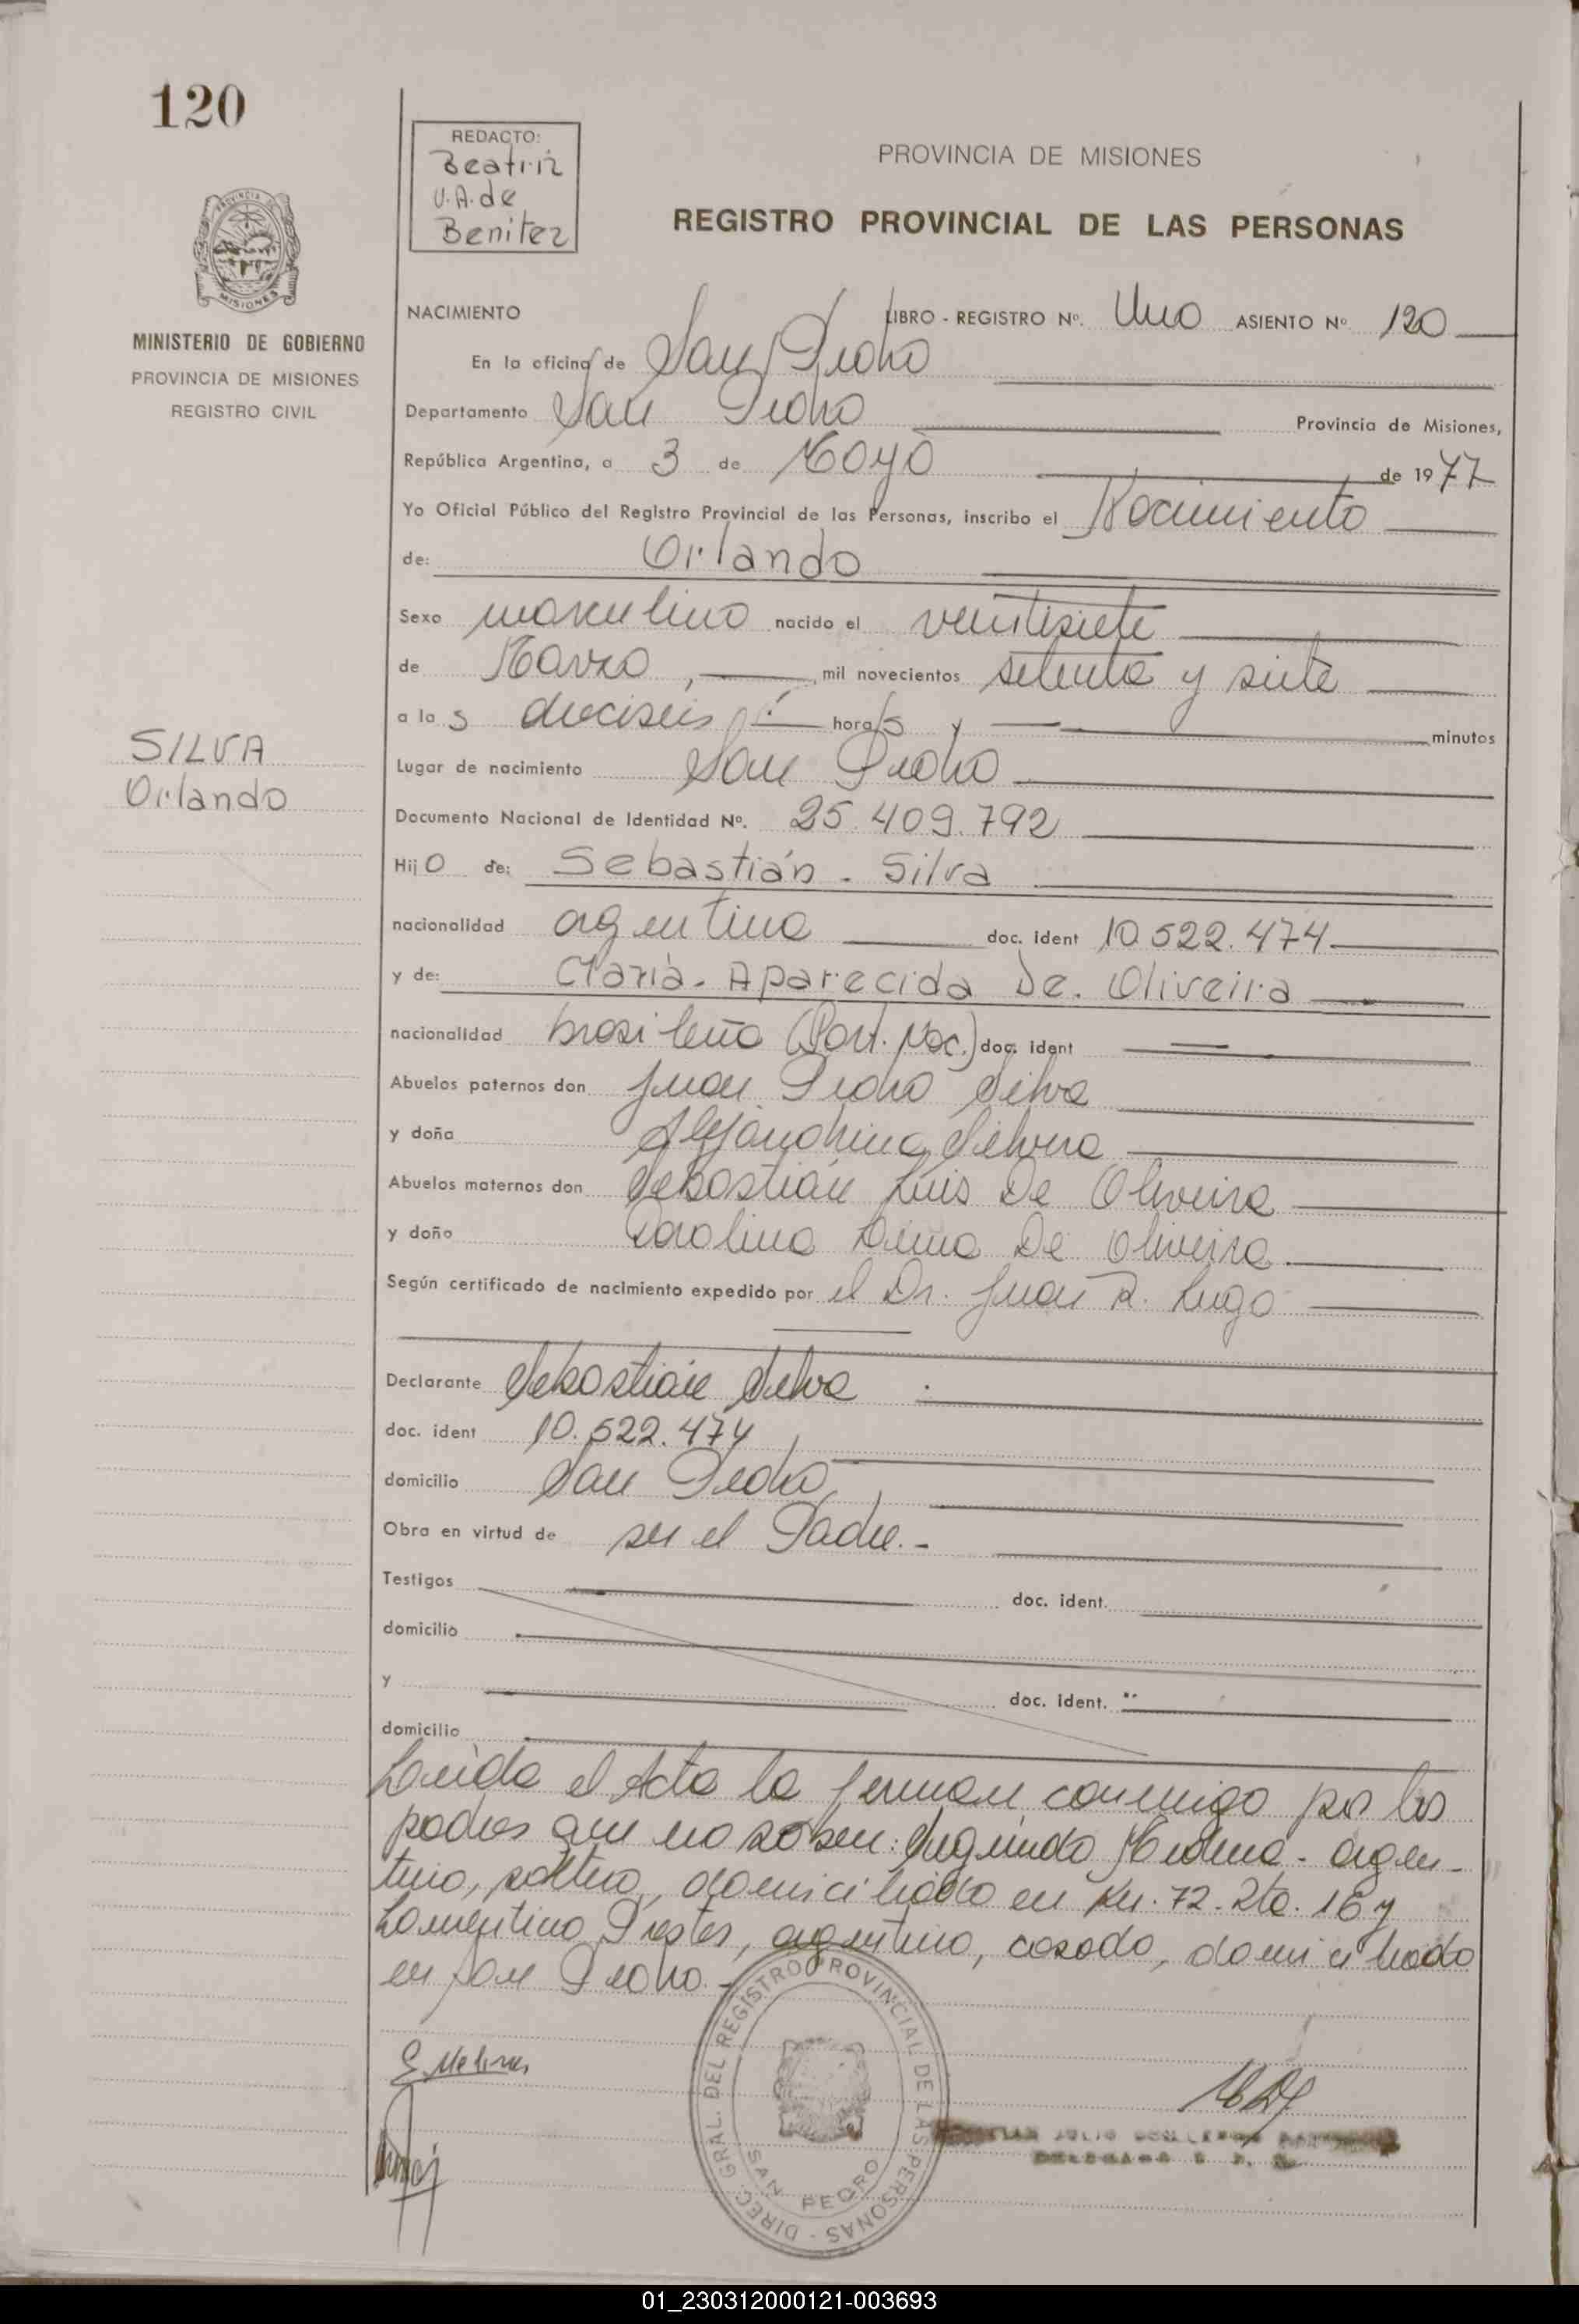 120
REDACTO:
Beatriz
V.A. de
Benitez
PROVINCIA DE MISIONES
REGISTRO PROVINCIAL DE LAS PERSONAS
MISIONES
MINISTERIO DE GOBIERNO
PROVINCIA DE MISIONES
REGISTRO CIVIL
NACIMIENTO LIBRO - REGISTRO Nº. Uno ASIENTO Nº 120
En la oficina de San Pedro
Departamento San Pedro Provincia de Misiones,
República Argentina, a 3 de Mayo de 1977
Yo Oficial Público del Registro Provincial de las Personas, inscribo el Nacimiento
de: Orlando
Sexo masculino nacido el veintisiete
de Marzo, mil novecientos setenta y siete
a las dieciseis horas y minutos
SILVA
Orlando
Lugar de nacimiento San Pedro
Documento Nacional de Identidad Nº. 25.409.792
Hijo de: Sebastián - Silva
nacionalidad argentina doc. ident 10.522.474
y de: María - Aparecida De. Oliveira
nacionalidad brasileña (Part. Nac.) doc. ident
Abuelos paternos don Juan Pedro Silva
y doña Alejandrina Silvera
Abuelos maternos don Sebastián Luis De Oliveira
y doña Carolina De Oliveira
Según certificado de nacimiento expedido por el Dr. Juan R. Lugo
Declarante Sebastián Silva
doc. ident 10.522.474
domicilio San Pedro
Obra en virtud de ser el Padre.-
Testigos doc. ident.
domicilio
y doc. ident.
domicilio
Leída el Acta la firman conmigo por los
padres que no saben: Segundo Medina - argen-
tino, soltero, domiciliado en Km. 72. Rta. 16 y
Laurentino Prestes, argentino, casado, domiciliado
en San Pedro.-
DIREC. GRAL. DEL REGISTRO PROVINCIAL DE LAS PERSONAS -
SAN PEDRO
01_230312000121-003693